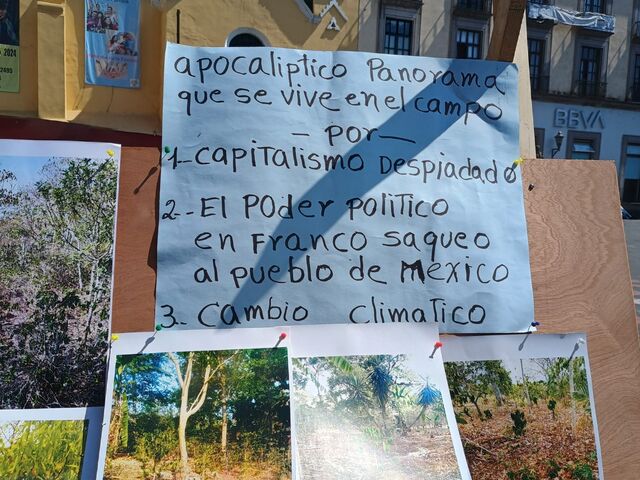 apocaliptico Panorama
que se vive en el campo
- por -
1- capitalismo Despiadado
2-- El Poder politico
en Franco saqueo
al pueblo de Mexico
3- Cambio climatico
BBVA